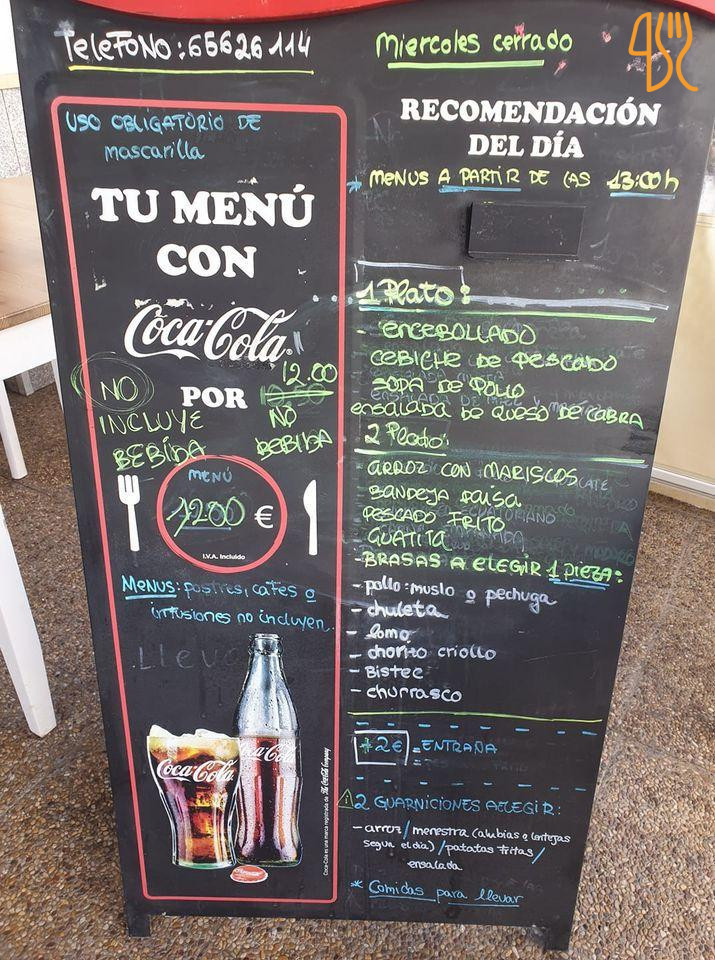 TELEFONO: 65626114
Miercoles cerrado
USO OBLIGATORIO DE
mascarilla
TU MENÚ
CON
Coca-Cola
POR
12.00
NO
INCLUYE
BEBIDA
NO
BEBIDA
MENÚ
12.00 €
I.V.A. Incluido
Menus: postres, cafes o
infusiones no incluyen
Lleva
Coca-Cola
Coca-Cola
Coca-Cola es una marca registrada de The Coca-Cola Company
RECOMENDACIÓN
DEL DÍA
* MENUS A PARTIR DE LAS 13:00h
1 Plato:
- ENCEBOLLADO
- CEBICHE DE PESCADO
- SOPA DE POLLO
ENSALADA DE QUESO DE CABRA
2 Plato:
- ARROZ CON MARISCOS
BANDEJA PAISA
PESCADO FRITO
GUATITA
- BRASAS A ELEGIR 1 PIEZA:
- pollo: muslo o pechuga
- chuleta
- lomo
- chorito criollo
- Bistec
- churrasco
+2€ = ENTRAÑA
2 GUARNICIONES A ELEGIR:
- arroz / menestra (alubias o lentejas
segun el dia) / patatas fritas /
ensalada
* Comidas para llevar